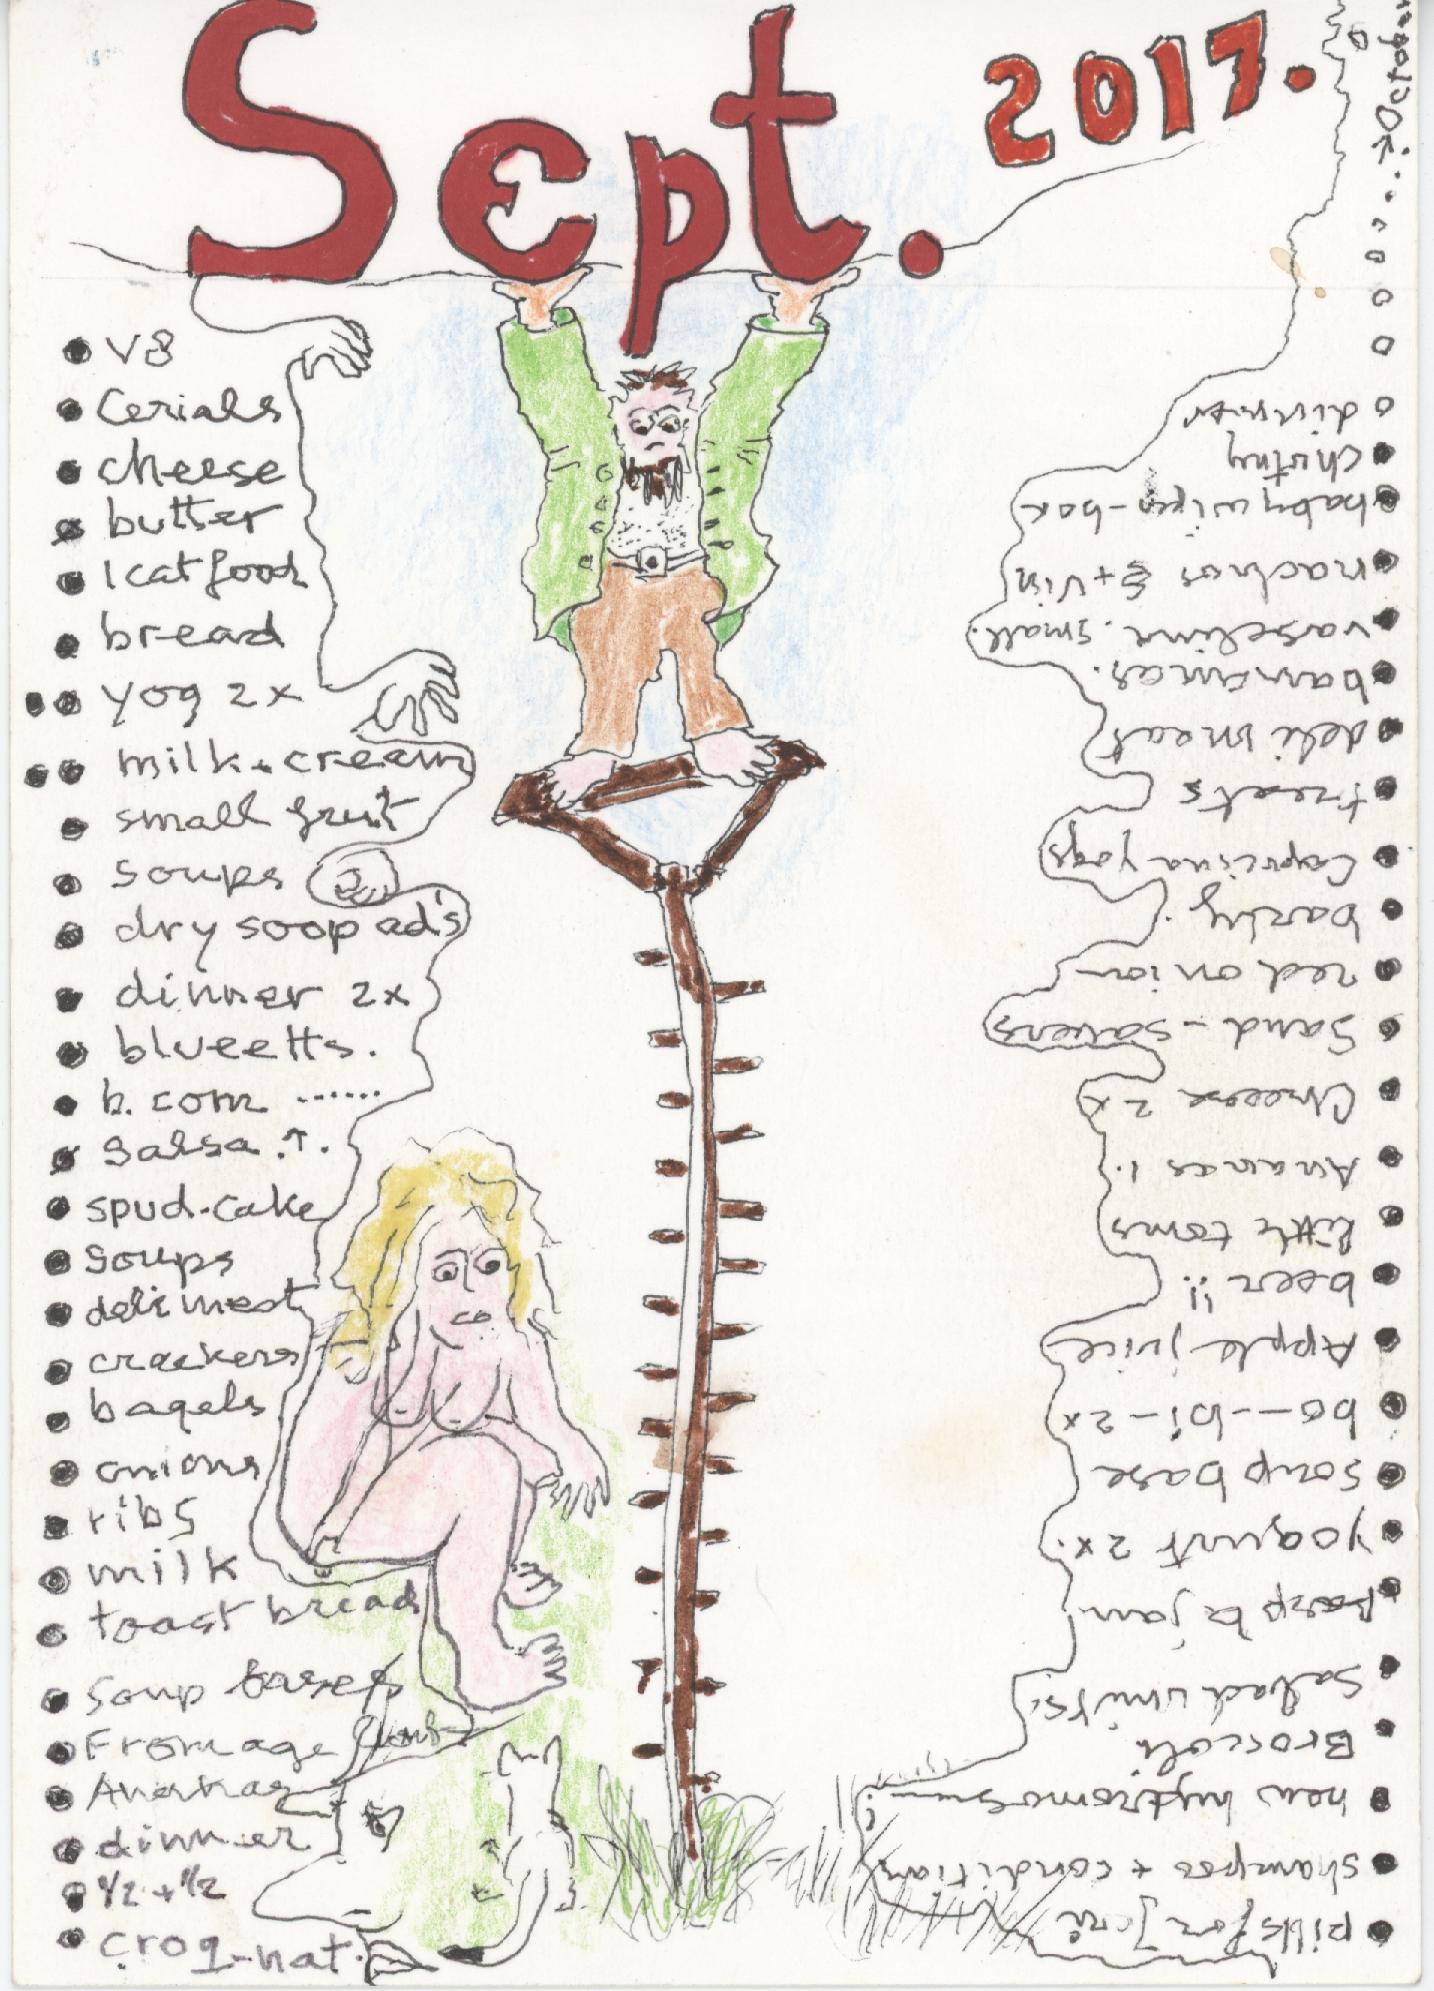 Sept. 2017.
V8
Cerials
cheese
butter
1 cat food
bread
yog 2x
milk + cream
small fruit
soups
dry soop ad's
dinner 2x
blueetts.
b. com ......
Salsa .↑.
spud-cake
Soups
deli meat
crackers
bagels
onions
ribs
milk
toast bread
Soup bases
Fromage
dinner
1/2 + 1/2
croq-nat.
pills for
shampoo + condition
new
Broccoli
Salad units.
rasp b jam
yogurt 2x.
soup base
bo--bi-2x
Apple juice
beer !!
little toms
Ananas 1.
Cheeese 2x
Sand-savers
red onion
barly.
yogs
treats
deli meat
bananas.
vaseline. small.
nachos S+Vin
baby wipe-box
chutny
dinner
October